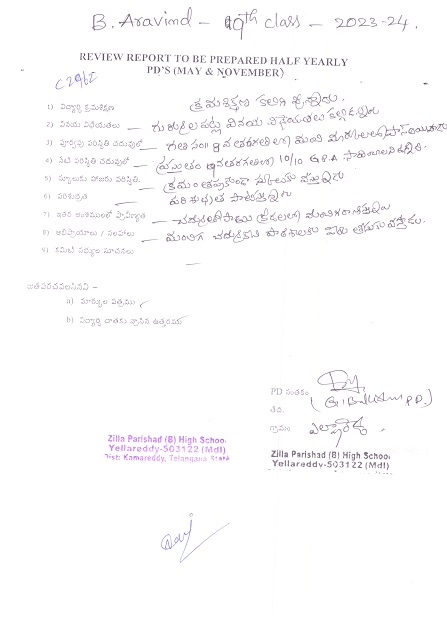 B. Aravind - 9th class - 2023-24.
REVIEW REPORT TO BE PREPARED HALF YEARLY
PD'S (MAY & NOVEMBER)
C2962
1) విద్యార్థి క్రమశిక్షణ క్రమశిక్షణ కలిగి వున్నాడు.
2) వినయ విధేయతలు - గురువులపట్ల వినయ విధేయతలు కల్గివున్నాడు
3) పూర్వపు పరిస్థితి చదువులో - గత సం॥ 8వ తరగతిలో మంచి మార్కులతో
4) నేటి పరిస్థితి చదువులో - ప్రస్తుతం 9వతరగతిలో 10/10 G.P.A సాధించాలని
5) స్కూలుకు హాజరు పరిస్థితి - క్రమం తప్పకుండా స్కూలుకు వస్తాడు
6) పరిశుభ్రత - పరిశుభ్రత పాటిస్తాడు
7) ఇతర అంశములలో ప్రావీణ్యత - చదువుతోపాటు క్రీడలలో
8) అభిప్రాయాలు / సలహాలు - మంచిగ
9) కమిటీ సభ్యుల సూచనలు
జతపరచవలసినవి -
a) మార్కుల పత్రము
b) విద్యార్థి దాతకు వ్రాసిన ఉత్తరము
PD సంతకం
తేది.
గ్రామం ఎల్లారెడ్డి
Zilla Parishad (B) High School
Yellareddy-503122 (Mdl)
Dist: Kamareddy, Telangana State
Zilla Parishad (B) High School
Yellareddy-503122 (Mdl)